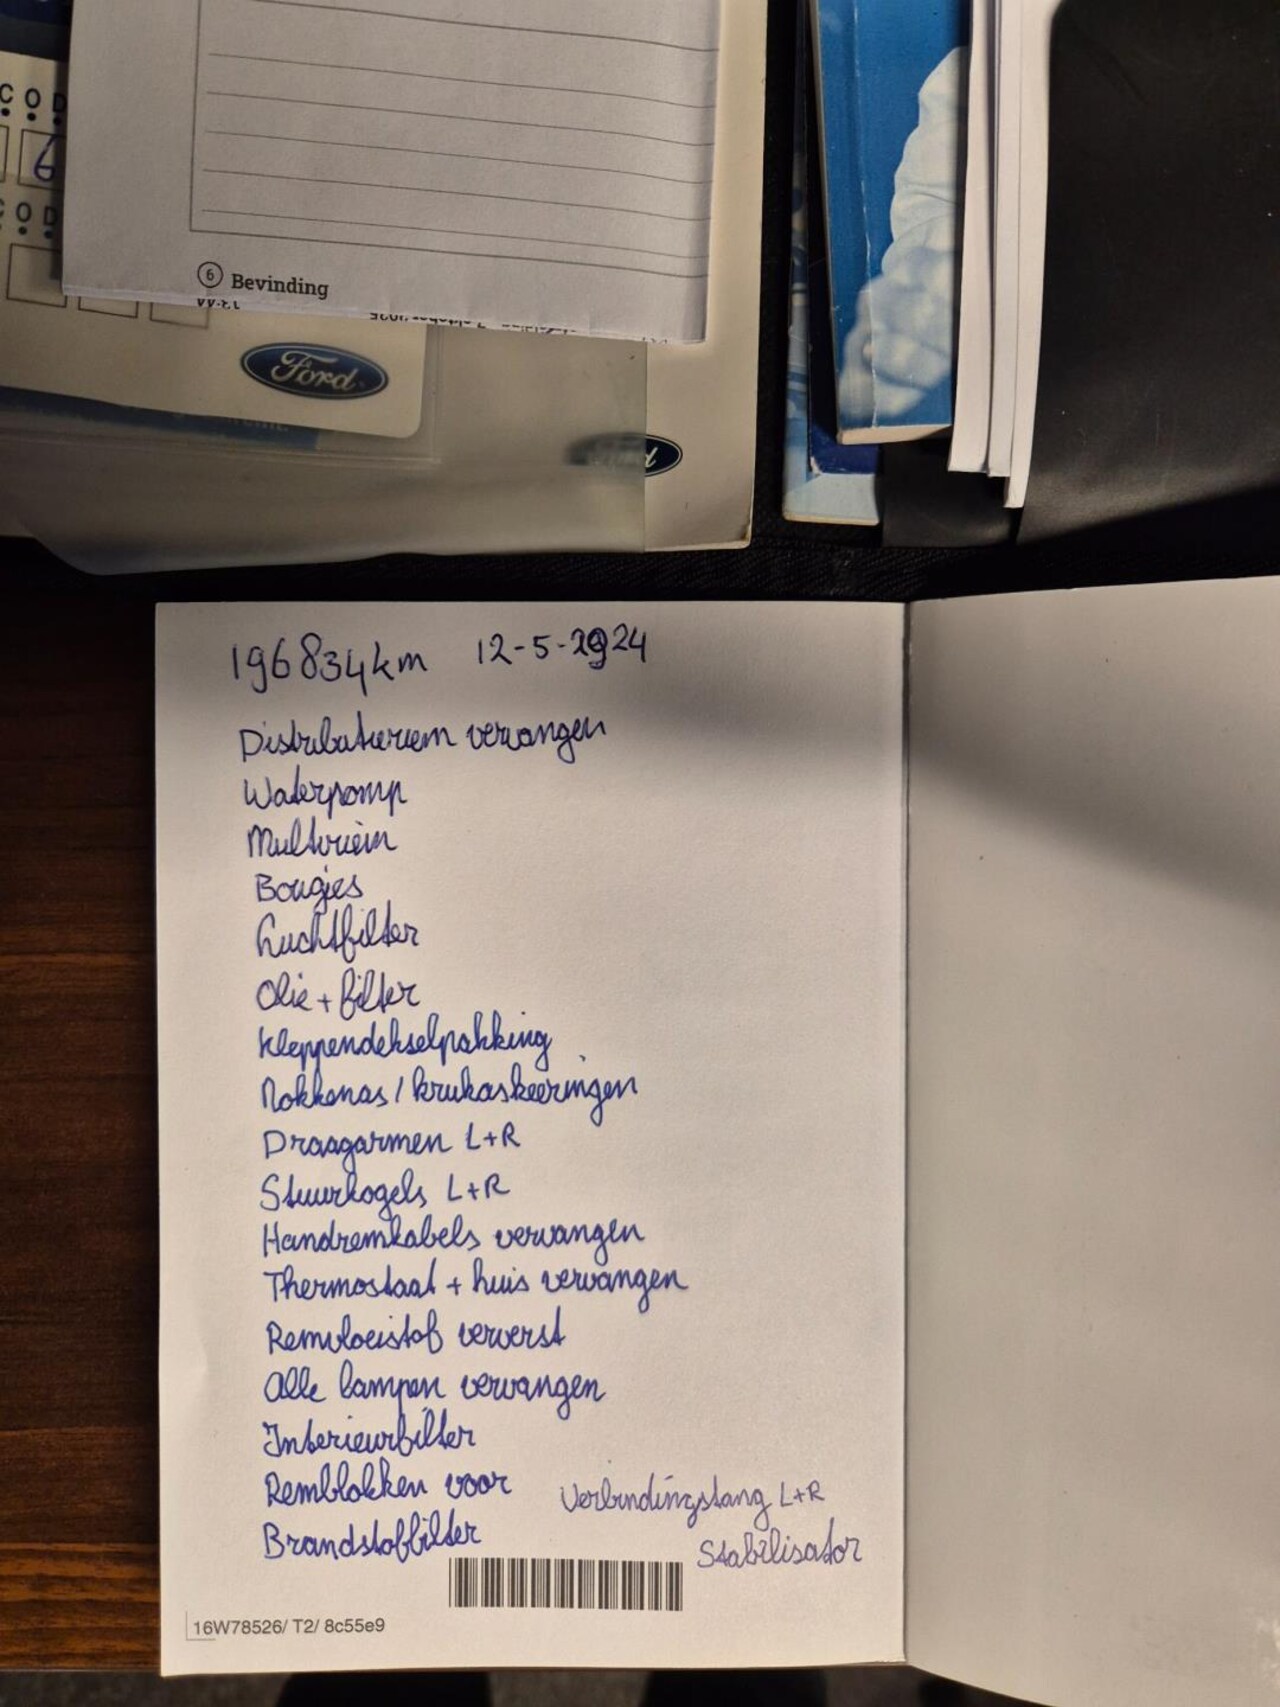 C O D
6
C O D
6 Bevinding
Ford
196834km 12-5-2024
Distributieriem vervangen
Waterpomp
Multiriem
Bougies
Luchtfilter
Olie + filter
Kleppendekselpakking
Nokkenas / krukaskeeringen
Draagarmen L+R
Stuurkogels L+R
Handremkabels vervangen
Thermostaat + huis vervangen
Remvloeistof ververst
Alle lampen vervangen
Interieurfilter
Remblokken voor
Verbindingstang L+R
Brandstoffilter
Stabilisator
16W78526/ T2/ 8c55e9